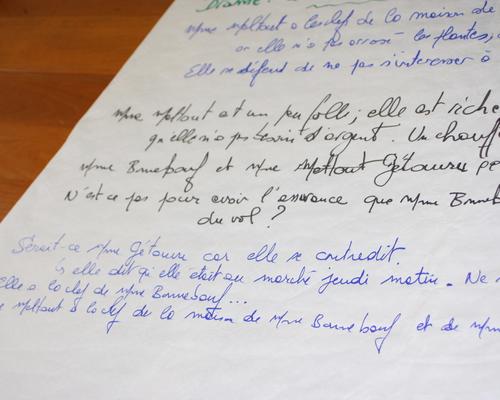 Drame:
Mme Meltout a les clef de la maison de
or elle n'a pas arrosé les plantes,
Elle se défend de ne pas s'interesser à
Mme Meltout est un peu folle; elle est riche
qu'elle n'a pas besoin d'argent. Un chauff
Mme Bonnebouf et Mme Meltout Gétouru pe
N'est ce pas pour avoir l'assurance que Mme Bonneb
du vol ?
Serait-ce Mme Gétouru car elle se contredit.
elle dit qu'elle était au marché jeudi matin. Ne
elle a la clef de Mme Bonnebouf...
Meltout a la clef de la maison de Mme Bonnebouf et de Mme